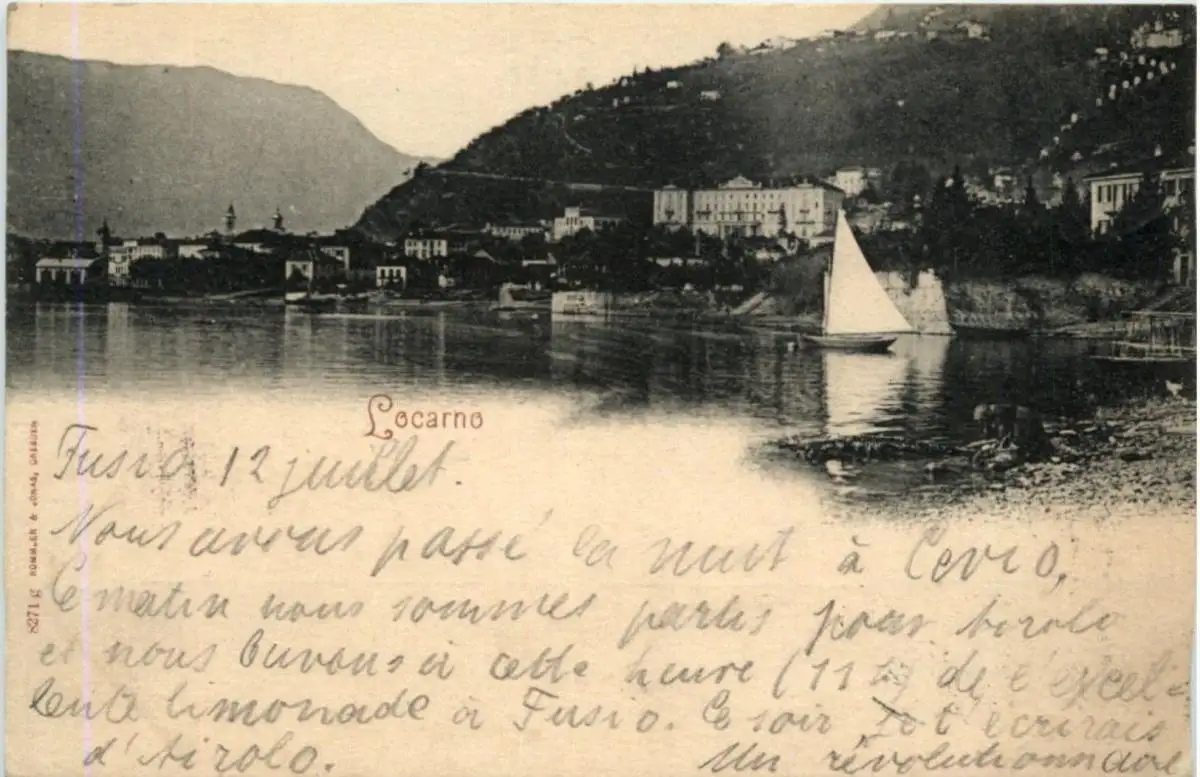 Locarno
8271g ROMMLER & JONAS, DRESDEN
Fusio 12 juillet.
Nous avons passé la nuit à Cevio,
Ce matin nous sommes partis pour Airolo
et nous buvons à cette heure (11 h) de l'excel-
lente limonade à Fusio. Ce soir t'écrirais
d'Airolo.
Un révolutionnaire